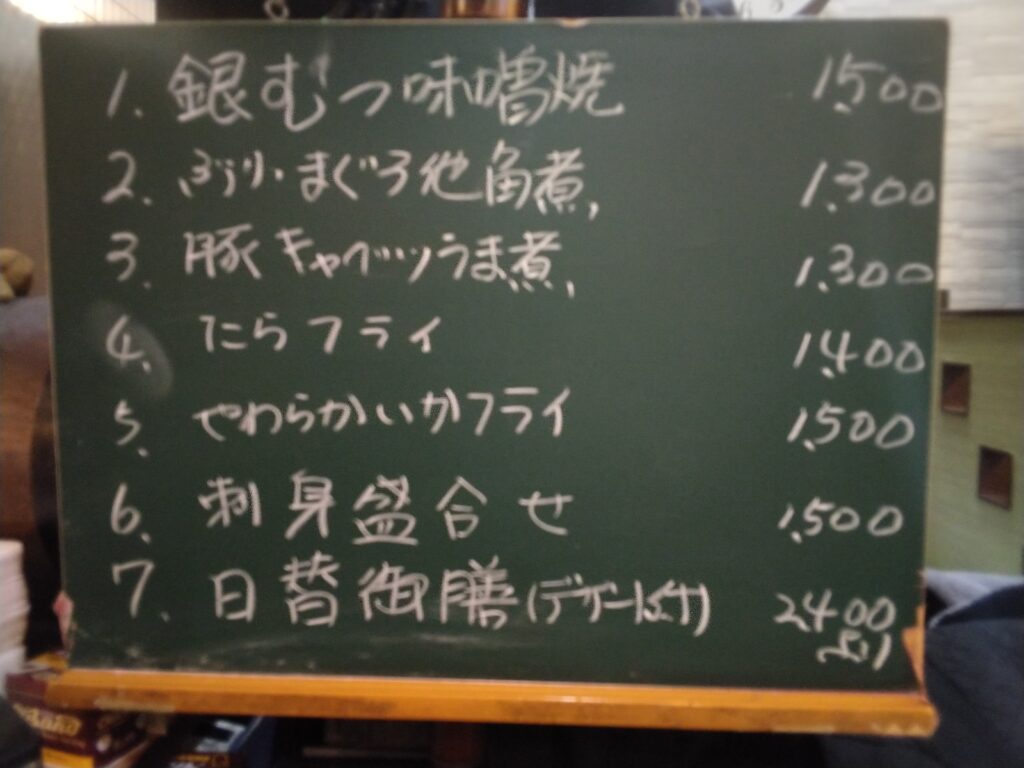 1. 銀むつ味噌焼 1,500
2. ぶり・まぐろ他角煮 1,300
3. 豚キャベツうま煮 1,300
4. たらフライ 1,400
5. やわらかいかフライ 1,500
6. 刺身盛合せ 1,500
7. 日替御膳(デザート付) 2,400
より